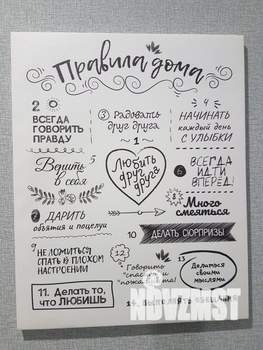 Правила дома
2
ВСЕГДА
ГОВОРИТЬ
ПРАВДУ
3 Радовать
друг друга
4
НАЧИНАТЬ
каждый день
С УЛЫБКИ
1
Любить
друг
друга
5
Верить
в себя
6 ВСЕГДА
ИДТИ
ВПЕРЕД!
7 ДАРИТЬ
объятия и поцелуи
8 Много
смеяться
9 НЕ ЛОЖИТЬСЯ
СПАТЬ В ПЛОХОМ
НАСТРОЕНИИ
10 ДЕЛАТЬ СЮРПРИЗЫ
11. Делать то,
что ЛЮБИШЬ
12
Говорить
"спасибо" и
"пожалуйста"
13
Делиться
своими
мыслями
ВЫПОЛНЯТЬ
NOVZMST